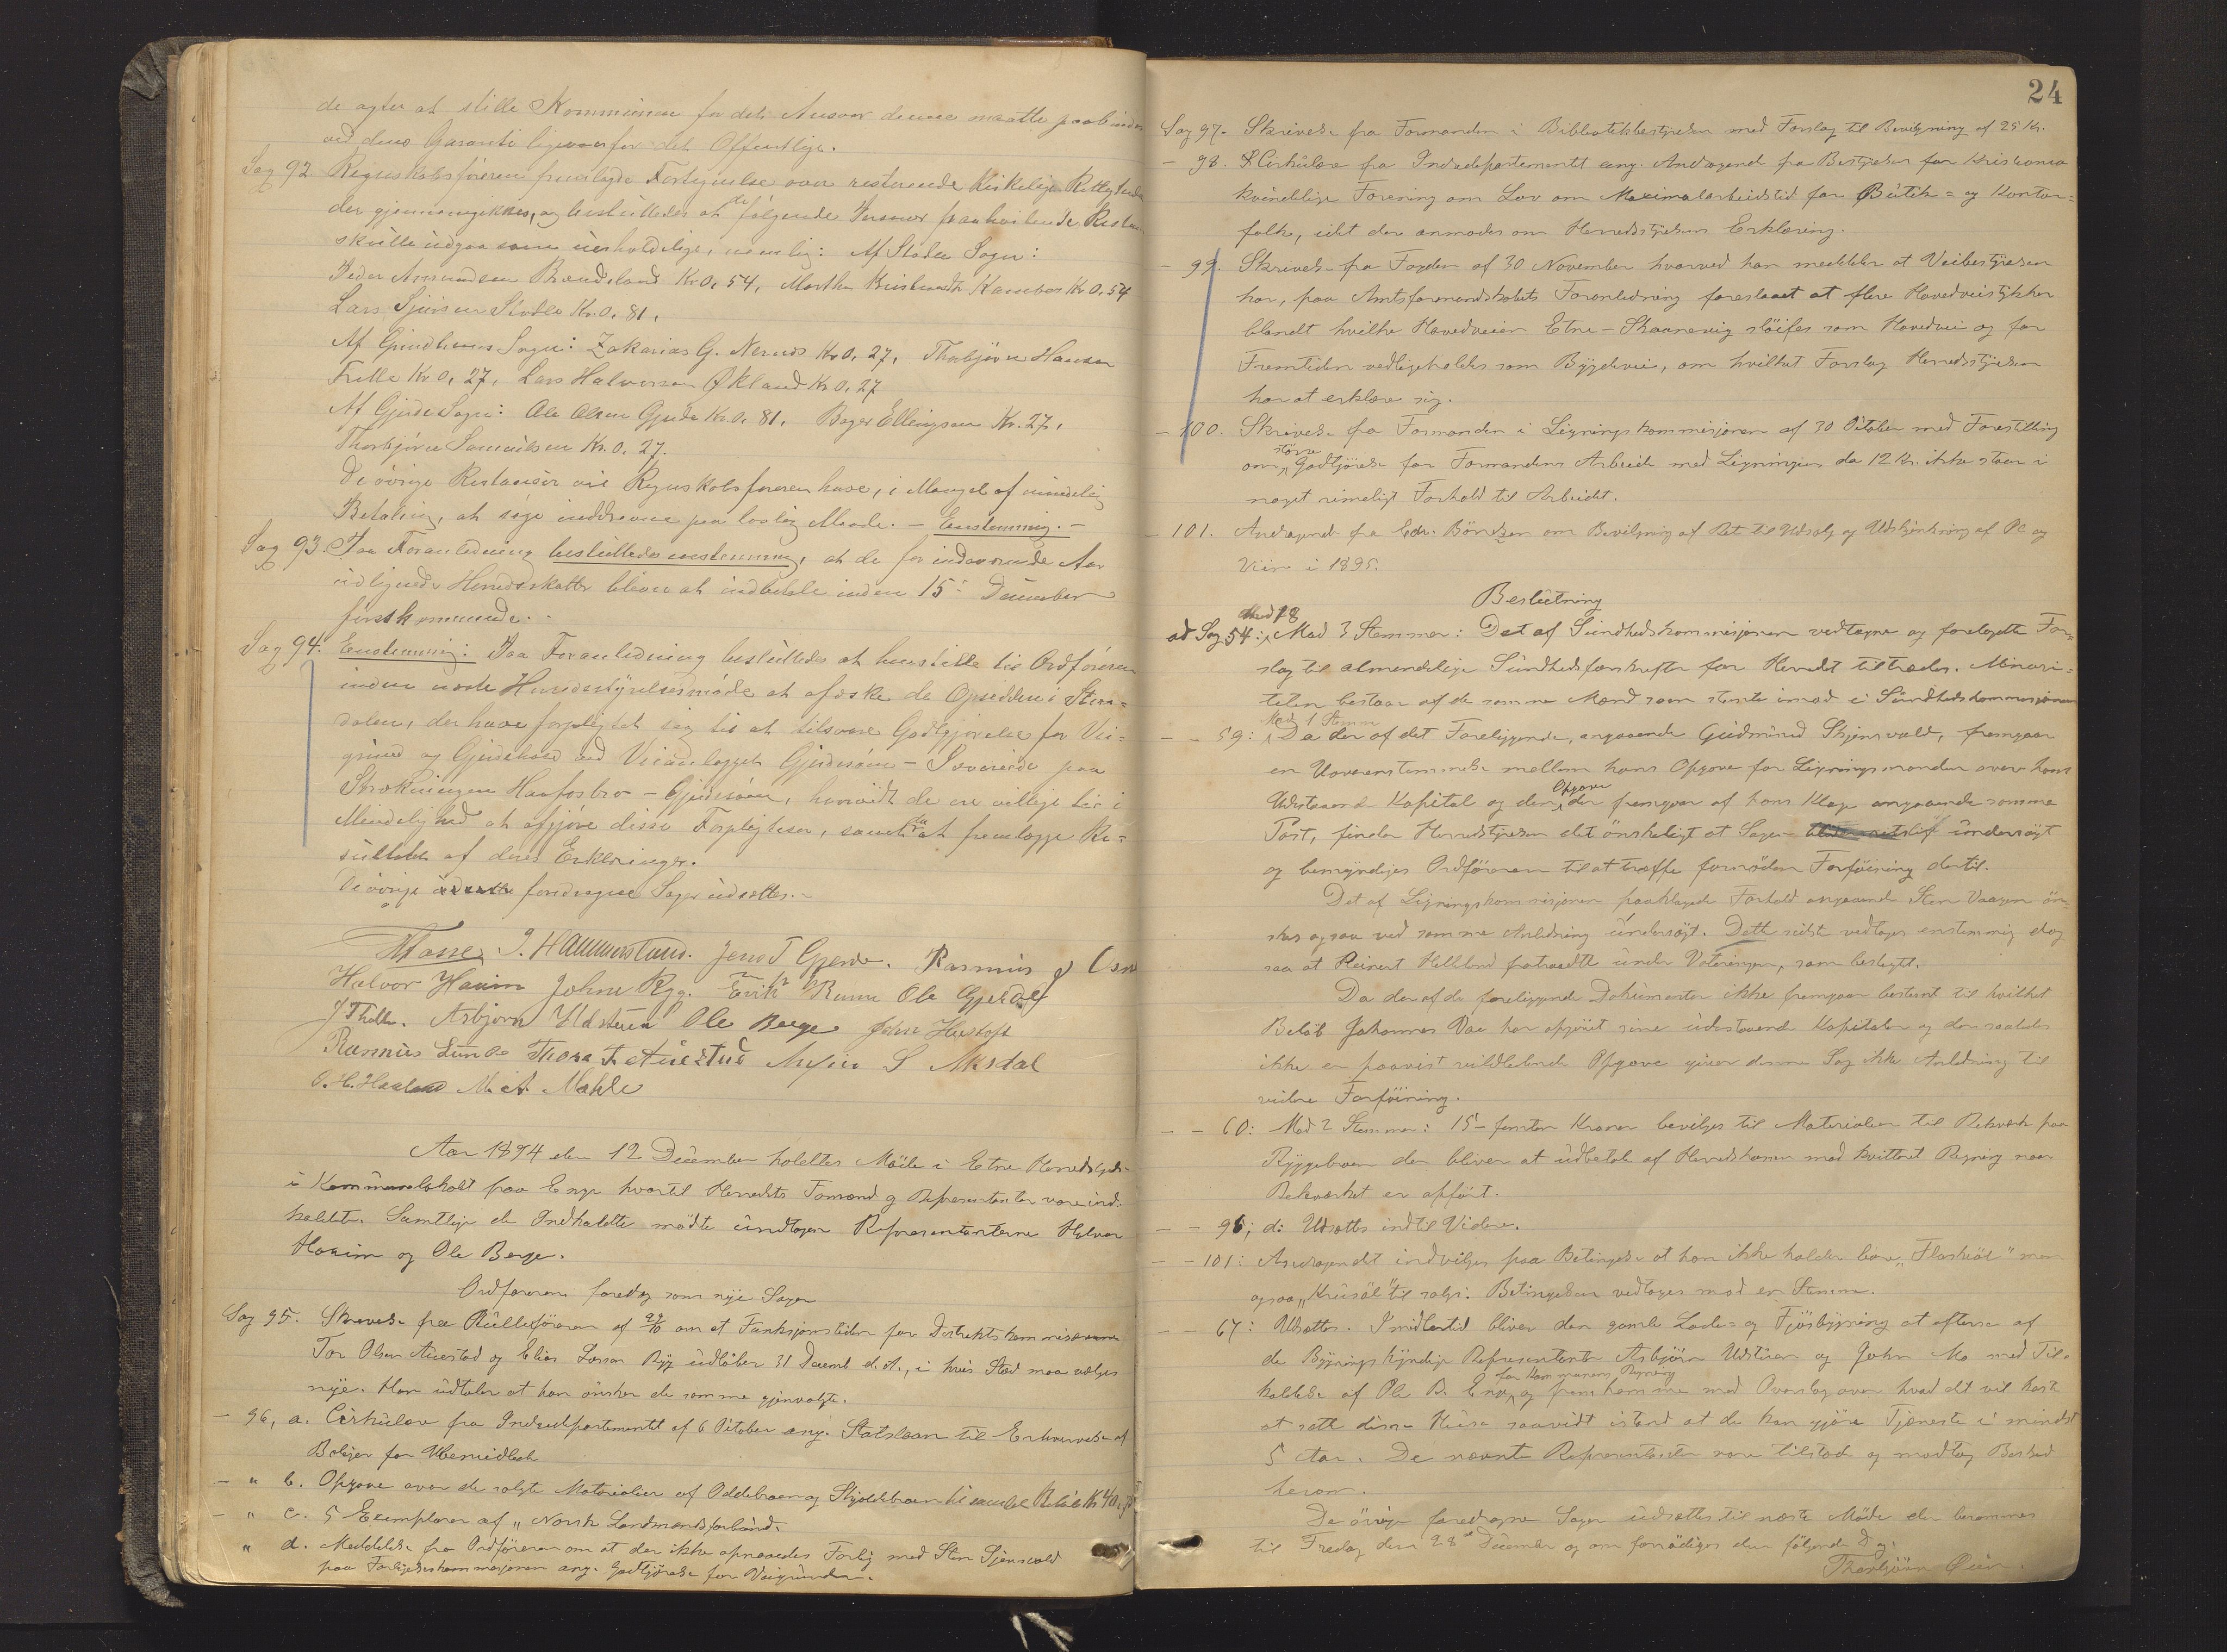 de agter at stille Kommunen for det Ansvar denne maatte paabindes
ved dens Garanti ligeoverfor det Offentlige.
Sag 92 Regnskabsføreren fremlagde Fortegnelse over resterende kirkelige Rettigheder
der gjennemgikkes, og besluttedes at de følgende Personer paahvilende Restan
skulle udgaa som uerholdelige, nemlig: Af Stødle Sogn:
Peder Amundsen Kr. 0, 54, Martha Kambes Kr 0, 54
Lars Sjursen Stødle Kr. 0. 81.
Af Grindheims Sogn: Zakarias G. Nernes Kr 0, 27, Thorbjørn Hansen
Frette Kr 0, 27, Lars Halvorsen Økland Kr 0. 27
Af Gjerde Sogn: Ole Olsen Gjerde Kr. 0. 81. Ellingsen Kr. 27.
Thorbjørn Samuelsen Kr. 0. 27.
De øvrige Restancer vil Regnskabsføreren have, i Mangel af mindelig
Betaling, at søge inddrevne paa lovlig Maade. - Enstemmig. -
Sag 93. Paa Foranledning besluttedes enstemmig, at de for indeværende Aar
udlignede Herredsskatter bliver at indbetale inden 15de December
førstkommende. -
Sag 94. Enstemmig: Paa Foranledning besluttedes at henstille til Ordføreren
inden næste Herredsstyrelsesmøde at afæske de Opsiddere i Stor=
dalen, der have forpligtet sig til at tilsvare Godtgjørelse for Vei=
grund og Gjerdehold ved Veianlægget Gjerdesøen - paa
Strækningen Haafosbro - Gjerdesøen, hvorvidt de ere villige til i
Mindelighed at afgjøre disse Forpligtelser, samt at fremlægge Re=
sultatet af deres Erklæringer.
De øvrige foredragne Sager udsættes. -
J. Hammersland. Jens T Gjerde. Rasmus J
Halvor Haaim Johne Rygg. Erik Ole Gjerde
Asbjørn Udsteen Ole Berge John
Rasmus Lunde Thore T. Auestad S Aksdal
O. H. Haaland M. A. Mæhle
Aar 1894 den 12 December holdtes Møde i Etne Herredsstyrelse
i Kommunelokalet paa Enge hvortil Herredets Formænd og Repræsentanter vare ind-
kaldte. Samtlige de Indkaldte mødte undtagen Repræsentanterne Halvor
Haaim og Ole Berge.
Ordføreren foredrog som nye Sager
Sag 95. Skrivelse fra Rulleføreren af om at Funksjonstiden for Distriktskommissærerne
Tor Olsen Auestad og Elias Larsen Ryg udløber 31 Decemb d. A., i hvis Sted maa vælges
nye. Han udtaler at han ønsker de samme gjenvalgte.
- 96, a. Cirkulære fra Indredepartementet af 6 Oktober ang. Statslaan til Erhvervelse af
Boliger for Ubemidlede
- " b. Opgave over de solgte Materialier af Oddebroen og Skjoldebroen til samlet Beløb Kr 40,
- " c. 5 Exemplarer af "Norsk Landmandsforbund.
" d. Meddelelse fra Ordføreren om at der ikke opnaaedes Forlig med Sten Skjensvold
paa Forligelseskommisjonen ang. Godtgjørelse for Veigrunden.
24
Sag 97. Skrivelse fra Formanden i Bibliotekbestyrelsen med Forslag til Bevilgning af 25 Kr.
- 98. Cirkulære fra Indredepartementet ang. Andragende fra Bestyrelsen for Kristiania
kvindelige Forening om Lov om Maximalarbeidstid for Butik- og Kontor=
folk, idet der anmodes om Herredsstyrelsens Erklæring.
- 99. Skrivelse fra Fogden af 30 November hvorved han meddeler at Veibestyrelsen
har, paa Amtsformandskabets Foranledning foreslaaet at flere Hovedveistykker
blandt hvilke Hovedveien Etne - Skaanevig sløifes som Hovedvei og for
Fremtiden vedligeholdes som Bygdevei, om hvilket Forslag Herredsstyrelsen
har at erklære sig.
- 100. Skrivelse fra Formanden i Ligningskommisjonen af 30 Oktober med Forestilling
om større Godtgjørelse for Formandens Arbeide med Ligningen da 12 Kr. ikke staar i
noget rimeligt Forhold til Arbeidet.
- 101. Andragende fra Edv. Børretzen om Bevilgning af Ret til Udsalg og Udskjænkning af Øl og
Viin i 1895.
Beslutning
ad Sag 54: Med 18 Mod 3 Stemmer: Det af Sundhedskommisjonen vedtagne og forelagte For=
slag til almindelige Sundhedsforskrifter for Herredet tiltrædes. Minori=
teten bestaar af de samme Mænd som stemte imod i Sundhedskommisjonen
- - 59: Mod 1 Stemme Da der af det Foreliggende, angaaende Gudmund Skjensvold, fremgaar
en Uoverenstemmelse mellem hans Opgave for Ligningsmanden over hans
Udestaaende Kapital og den Opgave der fremgaar af hans Klage angaaende samme
Post, finder Herredsstyrelsen det ønskeligt at Sagen undersøgt
og bemyndiges Ordføreren til at træffe fornøden Forføining dertil.
Det af Ligningskommisjonen paaklagede Forhold angaaende Sten Vaagen øn-
skes ogsaa ved samme Anledning undersøgt. Dette sidste vedtages enstemmig dog
saa at Reinert Helleland fratraadte under Voteringen, som beslegtet.
Da der af de foreliggende Dokumenter ikke fremgaar bestemt til hvilket
Beløb Johannes Vae har opgivet sine udestaaende Kapitaler og der saaledes
ikke er paavist vildledende Opgave giver denne Sag ikke Anledning til
videre Forføining.
- - 60: Mod 2 Stemmer: 15 - femten Kroner bevilges til Materialier til Rekværk paa
Ryggebroen der bliver at udbetale af Herredskassen mod kvitteret Regning naar
Rekværket er opført.
- - 96, d: Udsættes indtil Videre.
- - 101: Andragendet indvilges paa Betingelse at han ikke holder bare "Flaskeøl" men
ogsaa "Krusøl" til salgs. Betingelsen vedtages mod en Stemme.
- - 67: Udsættes. Imidlertid bliver den gamle Lade- og Fjøsbygning at efterse af
de Bygningskyndige Repræsentanter Asbjørn Udsteen og John Mo med Til-
kaldelse af Ole B. Enge for Kommunens Regning og fremkomme med Overslag over hvad det vil koste
at sætte disse Huse saavidt istand at de kan gjøre Tjeneste i mindst
5 Aar. De nævnte Repræsentanter vare tilstede og modtog Besked
herom.
De øvrige foredragne Sager udsættes til næste Møde der berammes
til Fredag den 28de December og om fornødiges den følgende Dag.
Thorbjørn Øien.